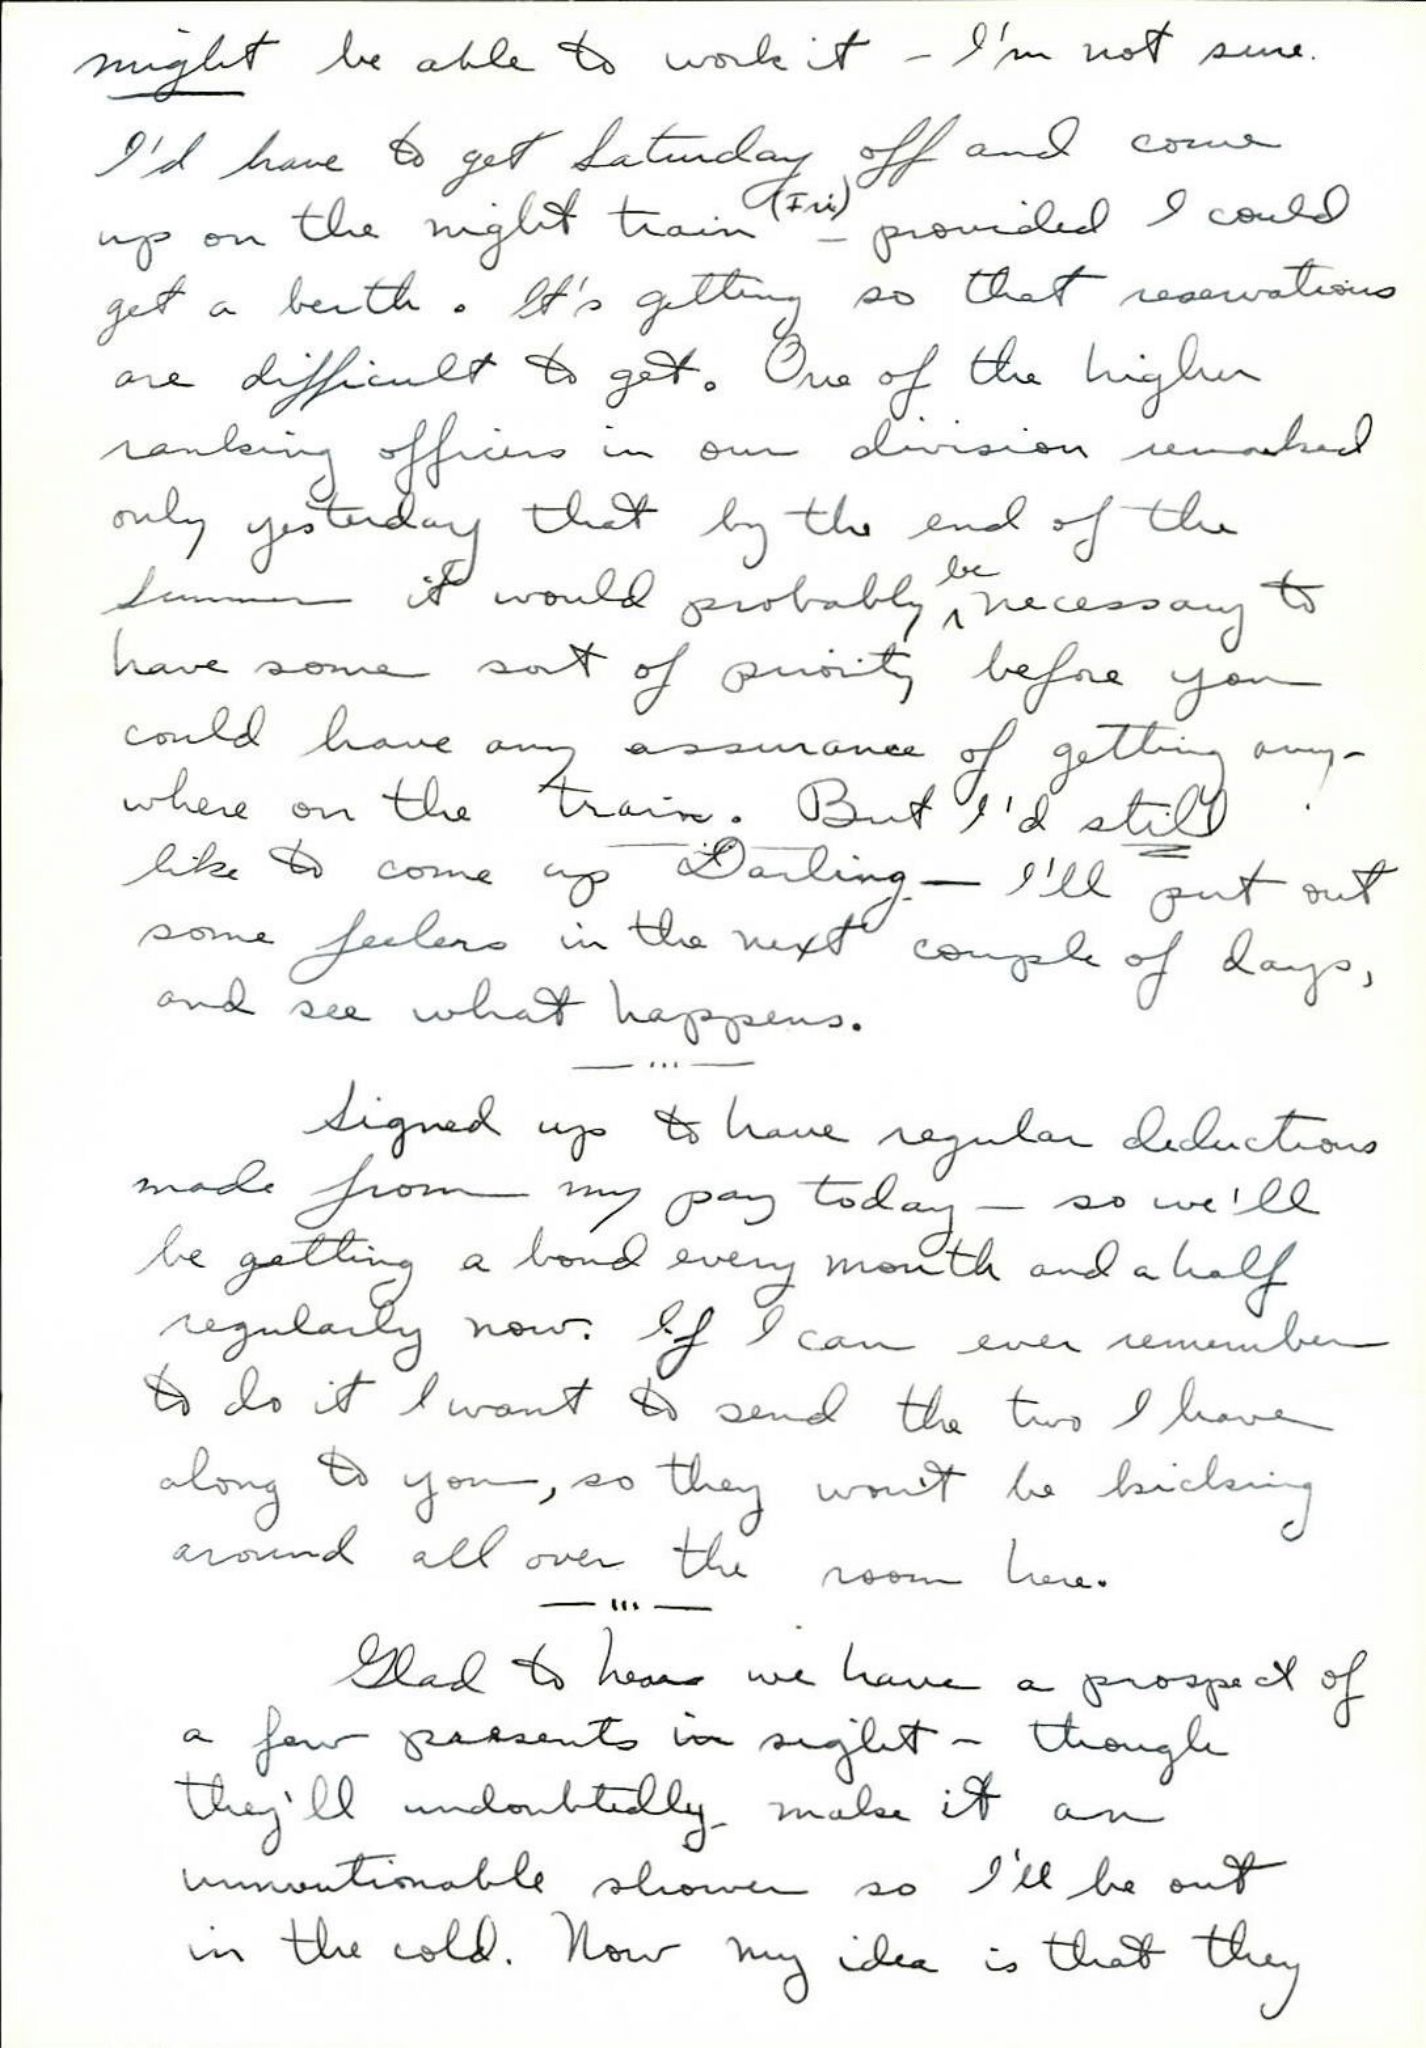 might be able to work it - I'm not sure.
I'd have to get Saturday off and come
up on the night train (Fri) - provided I could
get a berth. It's getting so that reservations
are difficult to get. One of the higher
ranking officers in our division remarked
only yesterday that by the end of the
summer it would probably be necessary to
have some sort of priority before you
could have any assurance of getting any-
where on the train. But I'd still
like to come up Darling — I'll put out
some feelers in the next couple of days,
and see what happens.
— ... —
Signed up to have regular deductions
made from my pay today — so we'll
be getting a bond every month and a half
regularly now. If I can ever remember
to do it I want to send the two I have
along to you, so they won't be kicking
around all over the room here.
— ''' —
Glad to hear we have a prospect of
a few presents in sight - though
they'll undoubtedly make it an
unmentionable shower so I'll be out
in the cold. Now my idea is that they